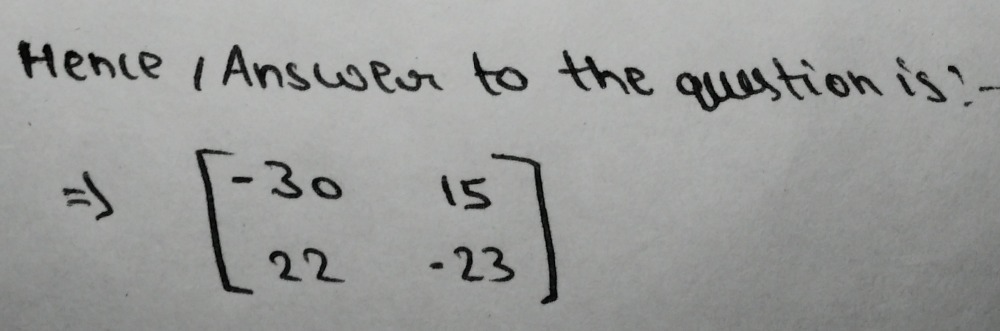 Hence, Answer to the question is:-
=> [-30 15
22 -23]